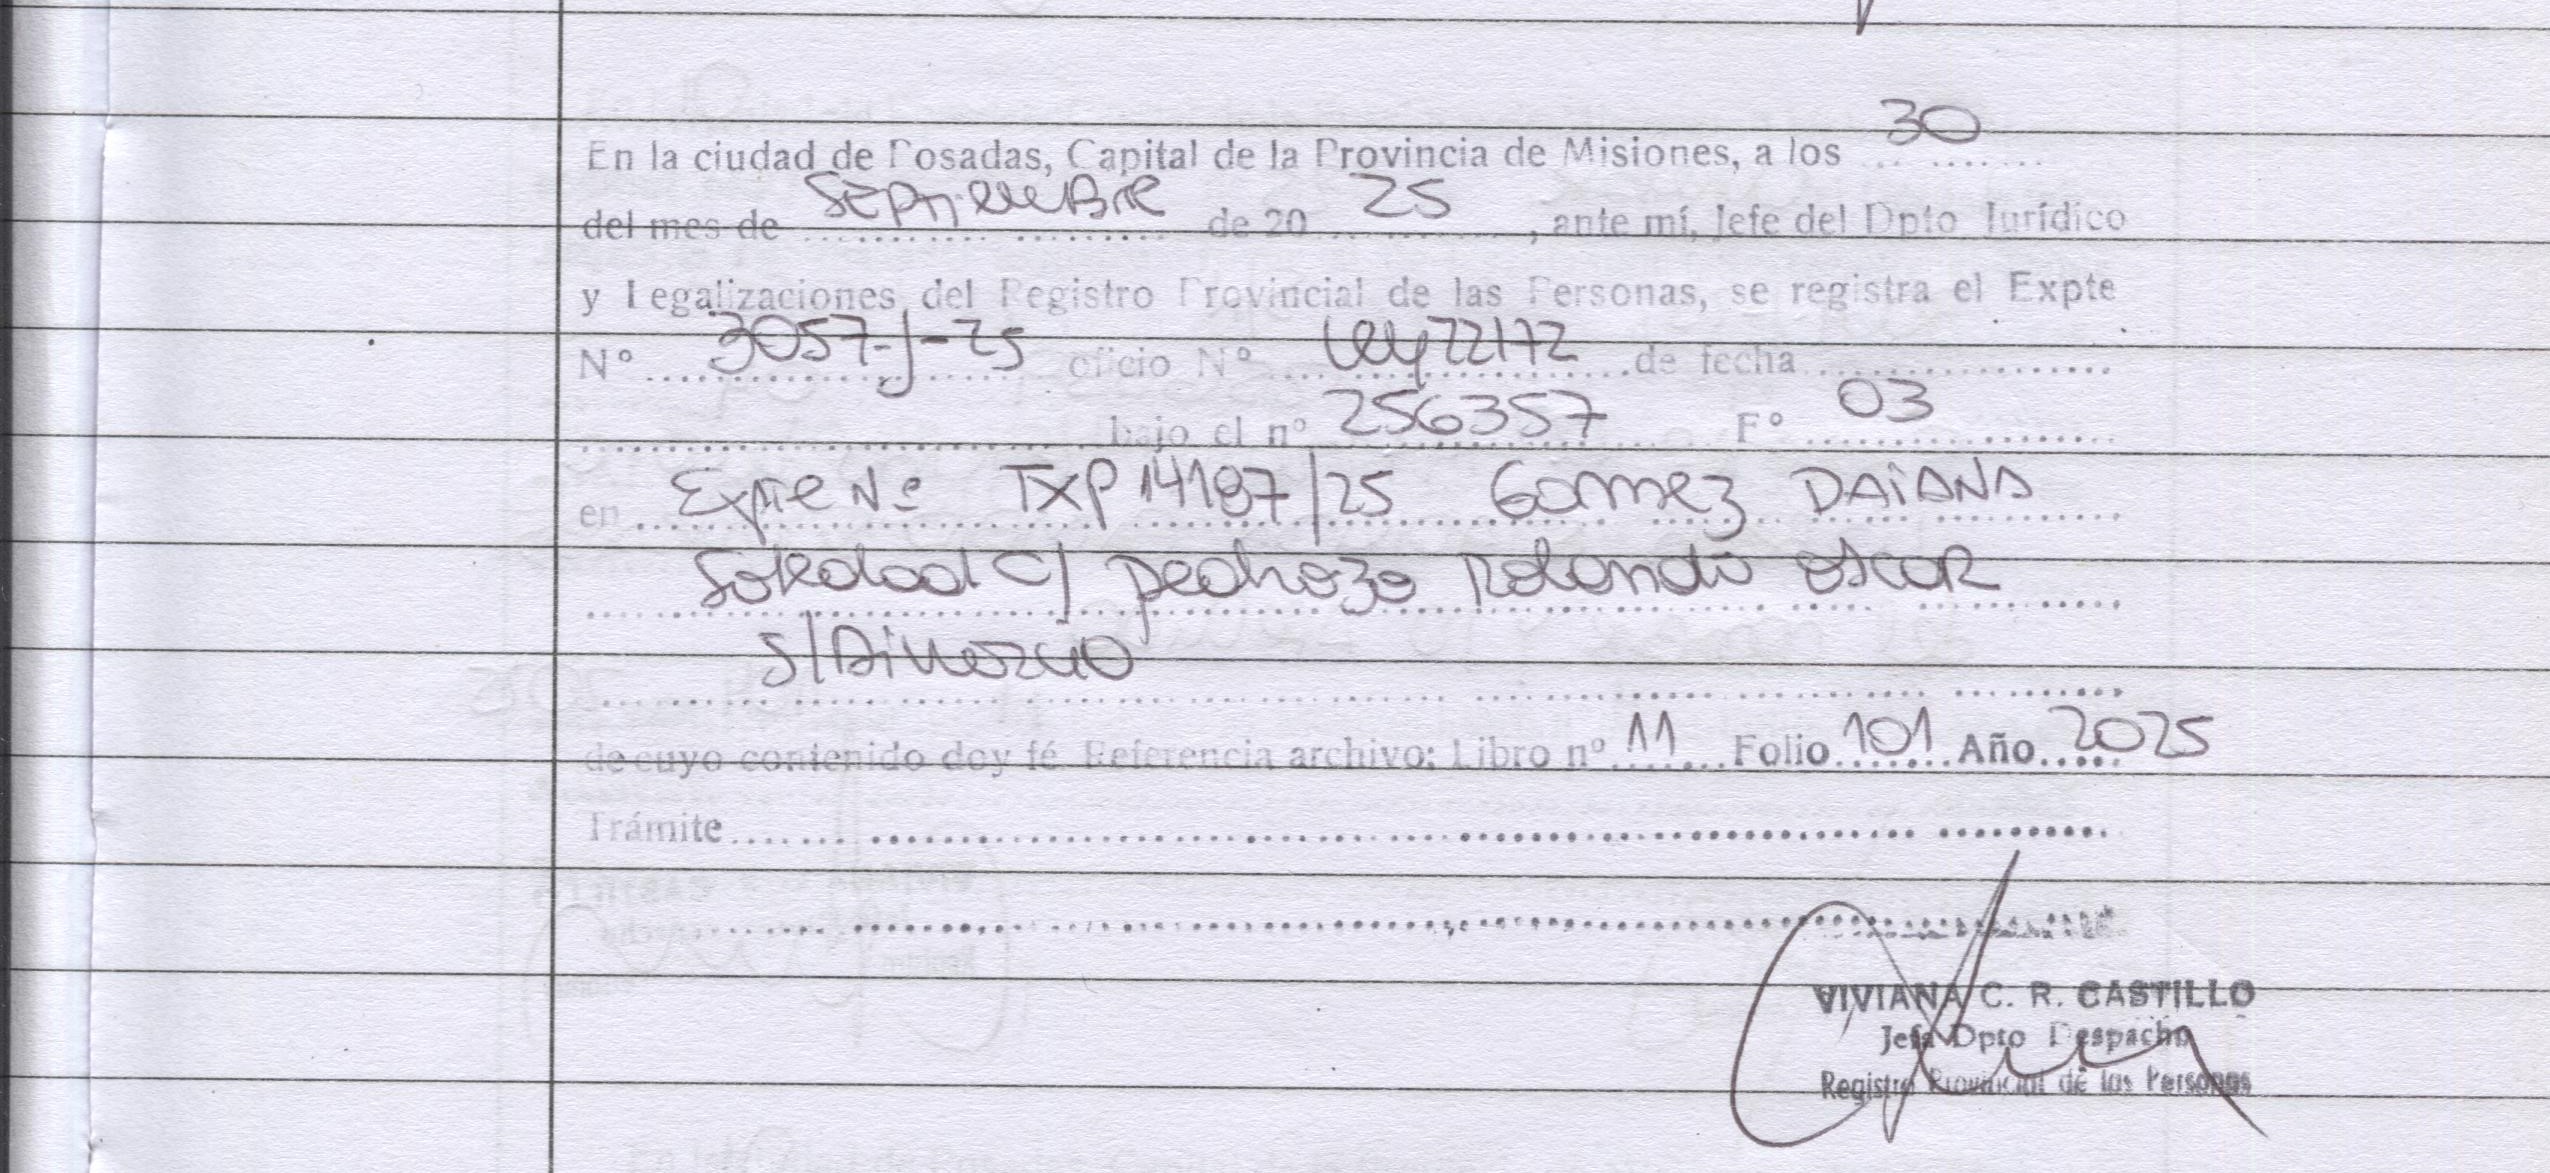 En la ciudad de Posadas, Capital de la Provincia de Misiones, a los 30
del mes de Septiembre de 20 25, ante mí, Jefe del Dpto Jurídico
y Legalizaciones del Registro Provincial de las Personas, se registra el Expte
N° 3057-J-25 oficio N° Ley 22172 de fecha
bajo el n° 256357 F° 03
en Expte N° TXP 14187/25 Gomez DAIANA
Soledad C/ Pedrozo Rolando Oscar
S/Divorcio
de cuyo contenido doy fé. Referencia archivo: Libro n° 11 Folio 101 Año 2025
Trámite
VIVIANA C. R. CASTILLO
Jefa Dpto Despacho
Registro Provincial de las Personas